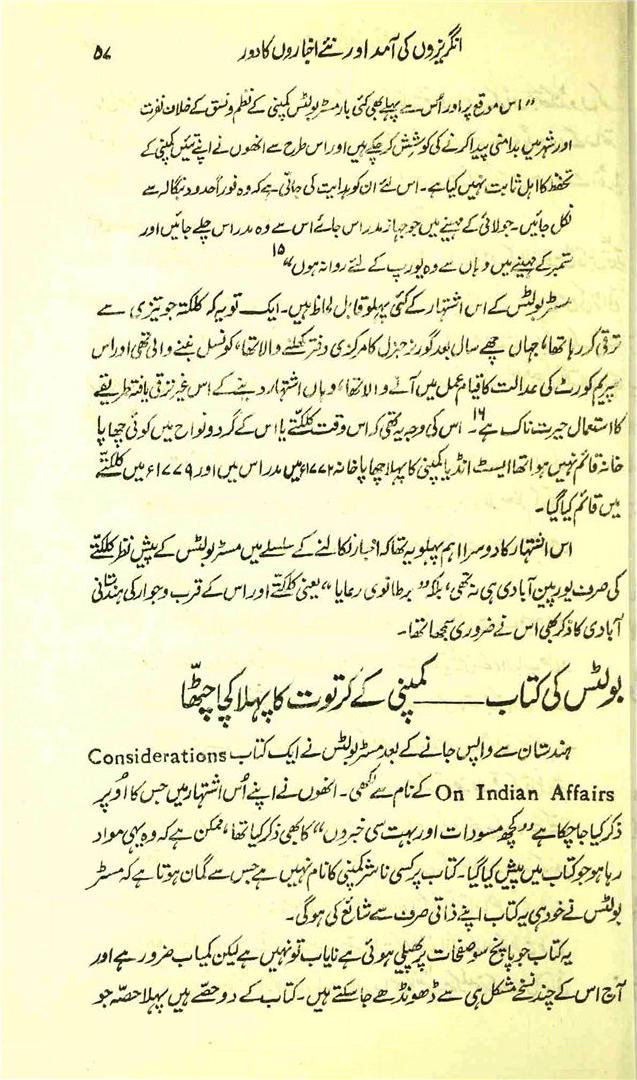 انگریزوں کی آمد اور نئے اخباروں کا دور ۵۷
"اس موقع پر اور اُس سے پہلے بھی کئی بار مسٹر بولٹس کمپنی کے نظم و نسق کے خلاف نفرت
اور شہر میں بدامنی پیدا کرنے کی کوشش کرچکے ہیں اور اس طرح سے انھوں نے اپنے تئیں کمپنی کے
تحفظ کا اہل ثابت نہیں کیا ہے۔ اس لئے ان کو ہدایت کی جاتی ہے کہ وہ فوراً حدود بنگالہ سے
نکل جائیں۔ جولائی کے مہینے میں جو جہاز مدراس جائے اس سے وہ مدراس چلے جائیں اور
ستمبر کے مہینے میں وہاں سے وہ یورپ کے لئے روانہ ہوں"۱۵
مسٹر بولٹس کے اس اشتہار کے کئی پہلو قابل لحاظ ہیں۔ ایک تو یہ کہ کلکتہ جو تیزی سے
ترقی کر رہا تھا، جہاں چھے سال بعد گورنر جنرل کا مرکزی دفتر کھلنے والا تھا، کونسل بننے والی تھی اور اس
سپریم کورٹ کی عدالت کا قیام عمل میں آنے والا تھا، وہاں اشتہار دینے کے اس غیر ترقی یافتہ طریقے
کا استعمال حیرت ناک ہے۱۶۔ اس کی وجہ یہ تھی کہ اس وقت کلکتے یا اس کے گرد و نواح میں کوئی چھاپا
خانہ قائم نہیں ہوا تھا ایسٹ انڈیا کمپنی کا پہلا چھاپا خانہ ۱۷۷۲ء میں مدراس میں اور ۱۷۷۹ء میں کلکتے
میں قائم کیا گیا۔
اس اشتہار کا دوسرا اہم پہلو یہ تھا کہ اخبار نکالنے کے سلسلے میں مسٹر بولٹس کے پیش نظر کلکتے
کی صرف یورپین آبادی ہی نہ تھی، بلکہ "برطانوی رعایا" یعنی کلکتے اور اس کے قرب و جوار کی ہندستانی
آبادی کا ذکر بھی اس نے ضروری سمجھا تھا۔
بولٹس کی کتاب ——— کمپنی کے کرتوت کا پہلا کچا چٹھا
ہندستان سے واپس جانے کے بعد مسٹر بولٹس نے ایک کتاب Considerations
On Indian Affairs کے نام سے لکھی۔ انھوں نے اپنے اُس اشتہار میں جس کا اُوپر
ذکر کیا جا چکا ہے "کچھ مسودات اور بہت سی خبروں" کا بھی ذکر کیا تھا، ممکن ہے کہ وہ یہی مواد
رہا ہو جو کتاب میں پیش کیا گیا۔ کتاب پر کسی ناشر کمپنی کا نام نہیں ہے جس سے گمان ہوتا ہے کہ مسٹر
بولٹس نے خود ہی یہ کتاب اپنے ذاتی صرف سے شائع کی ہوگی۔
یہ کتاب جو پانچ سو صفحات پر پھیلی ہوئی ہے نایاب تو نہیں ہے لیکن کمیاب ضرور ہے اور
آج اس کے چند نسخے مشکل ہی سے ڈھونڈھے جا سکتے ہیں۔ کتاب کے دو حصّے ہیں پہلا حصّہ جو